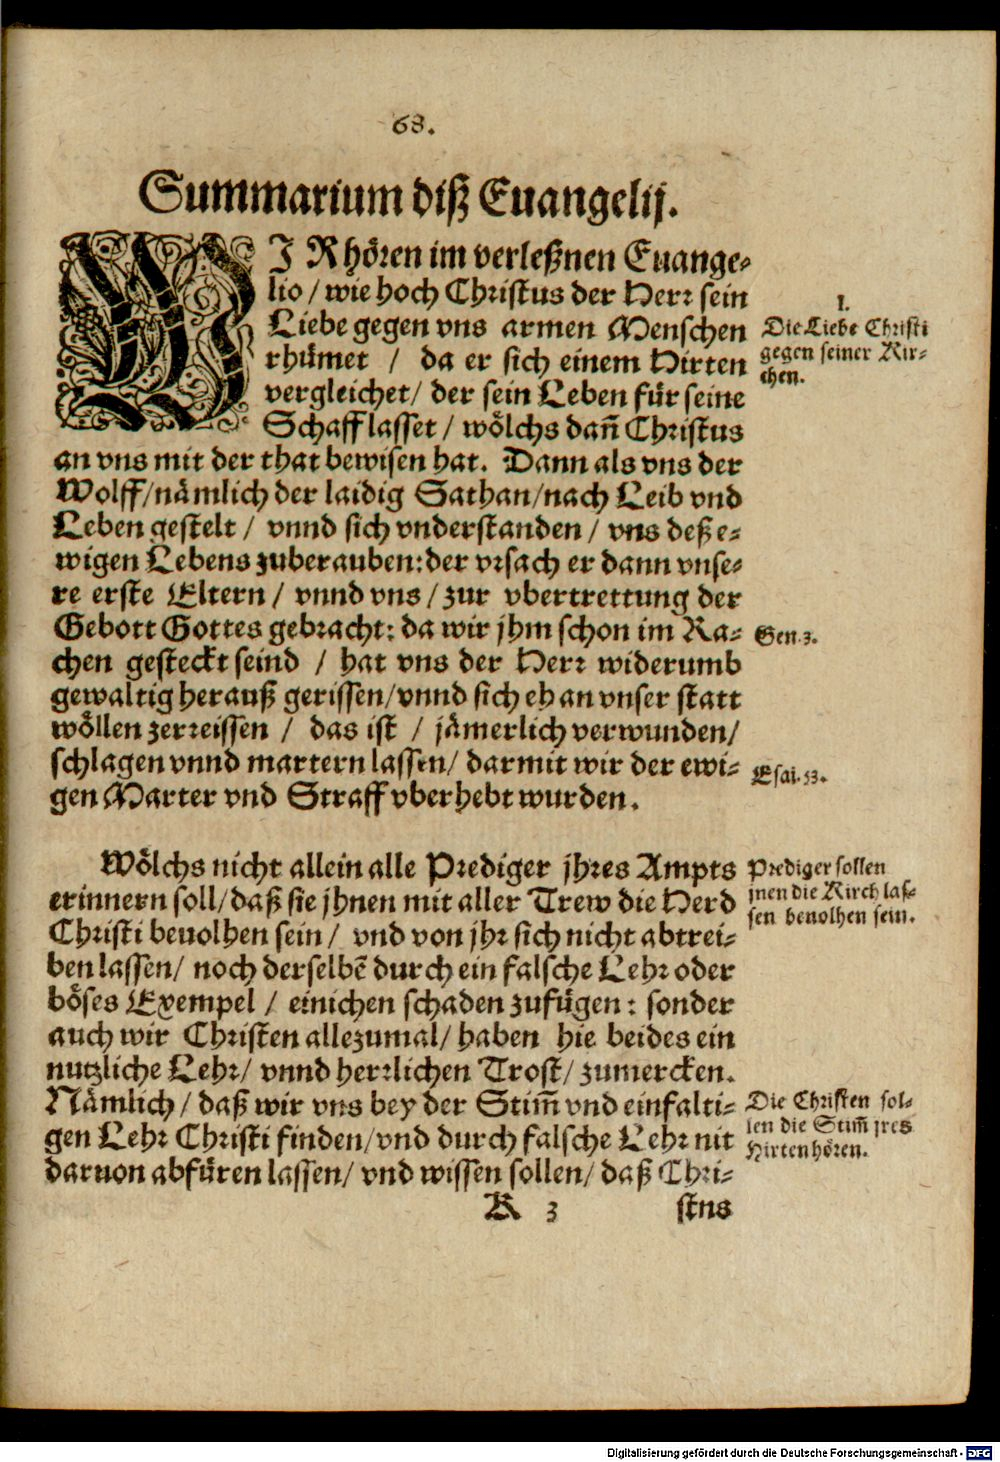 68.
Summarium diß Euangelij.
WJR hören im verleßnen Euange-
lio / wie hoch Christus der Herr sein
Liebe gegen vns armen Menschen
rhümet / da er sich einem Hirten
vergleichet / der sein Leben für seine
Schaff lasset / wölchs dañ Christus
an vns mit der that bewisen hat. Dann als vns der
Wolff / nämlich der laidig Sathan / nach Leib vnd
Leben gestelt / vnnd sich vnderstanden / vns deß e-
wigen Lebens zuberauben: der vrsach er dann vnse-
re erste Eltern / vnnd vns / zur vbertrettung der
Gebott Gottes gebracht: da wir jhm schon im Ra-
chen gesteckt seind / hat vns der Herr widerumb
gewaltig herauß gerissen / vnnd sich eh an vnser statt
wöllen zerreissen / das ist / jämerlich verwunden /
schlagen vnnd martern lassen / darmit wir der ewi-
gen Marter vnd Straff vberhebt wurden.
I.
Die Liebe Christi
gegen seiner Kir-
chen.
Gen. 3.
Esai. 53.
Wölchs nicht allein alle Prediger jhres Ampts
erinnern soll / daß sie jhnen mit aller Trew die Herd
Christi beuolhen sein / vnd von jhr sich nicht abtrei-
ben lassen / noch derselbē durch ein falsche Lehr oder
böses Exempel / einichen schaden zufügen: sonder
auch wir Christen allezumal / haben hie beides ein
nutzliche Lehr / vnnd herrlichen Trost / zumercken.
Nämlich / daß wir vns bey der Stim̃ vnd einfalti-
gen Lehr Christi finden / vnd durch falsche Lehr nit
daruon abfüren lassen / vnd wissen sollen / daß Chri-
Prediger sollen
jnen die Kirch las-
sen beuolhen sein.
Die Christen sol-
len die Stim̃ jres
Hirten hören.
K 3 stus
Digitalisierung gefördert durch die Deutsche Forschungsgemeinschaft - DFG